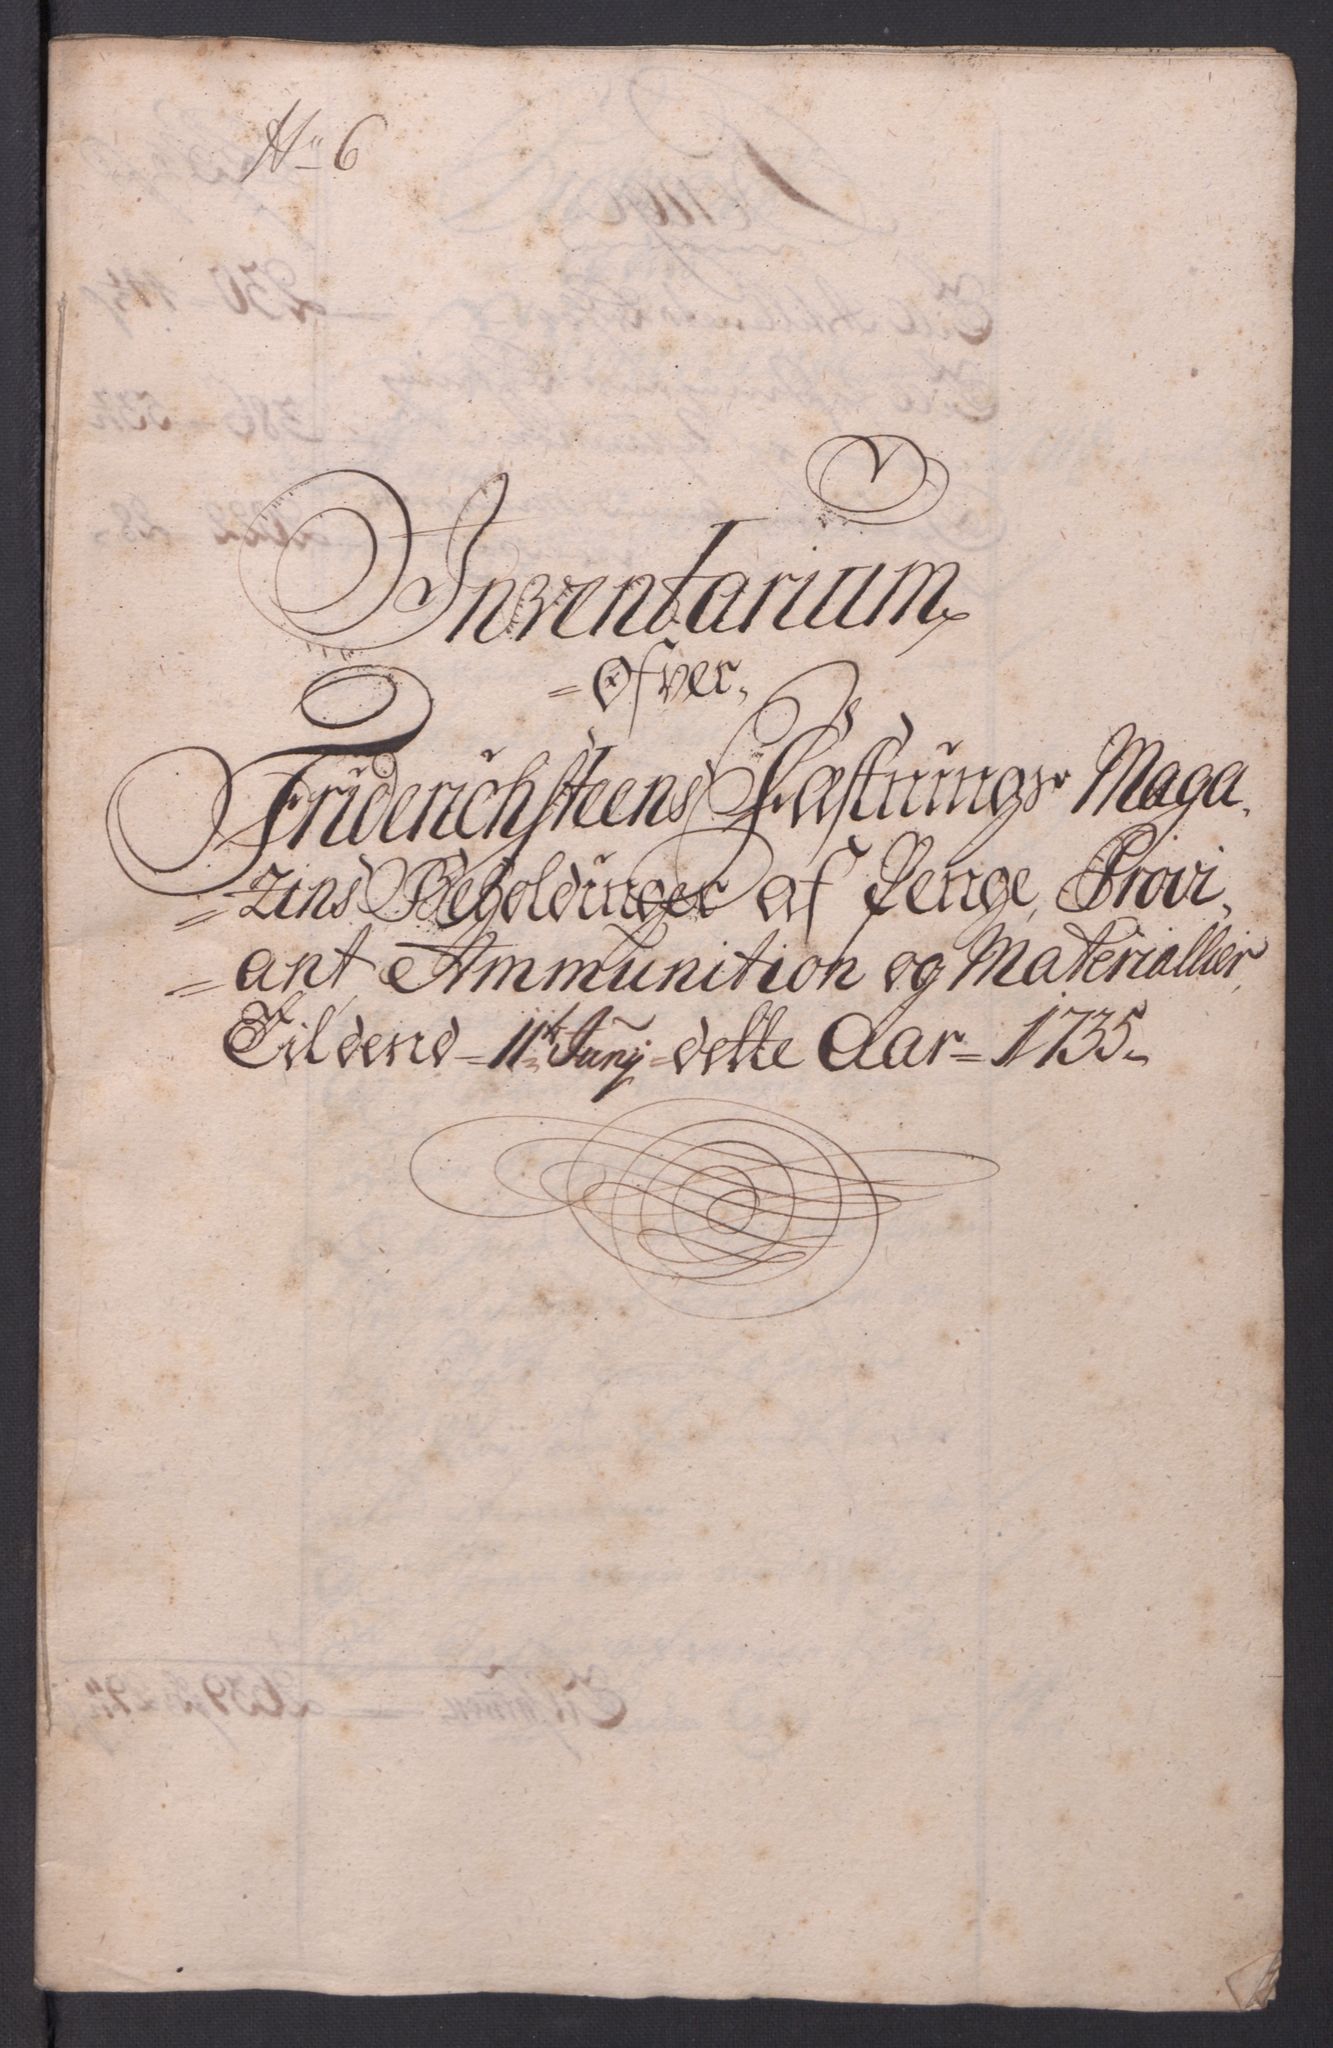 No 6
Inventarium
= Ofver,
Friderichsteens Fæstnings Maga,
= zins Beholdinger af Penge, Provi,
= ant, Ammunition og Materiallier,
Til dend = 11te Junj = dette Aar = 1735.